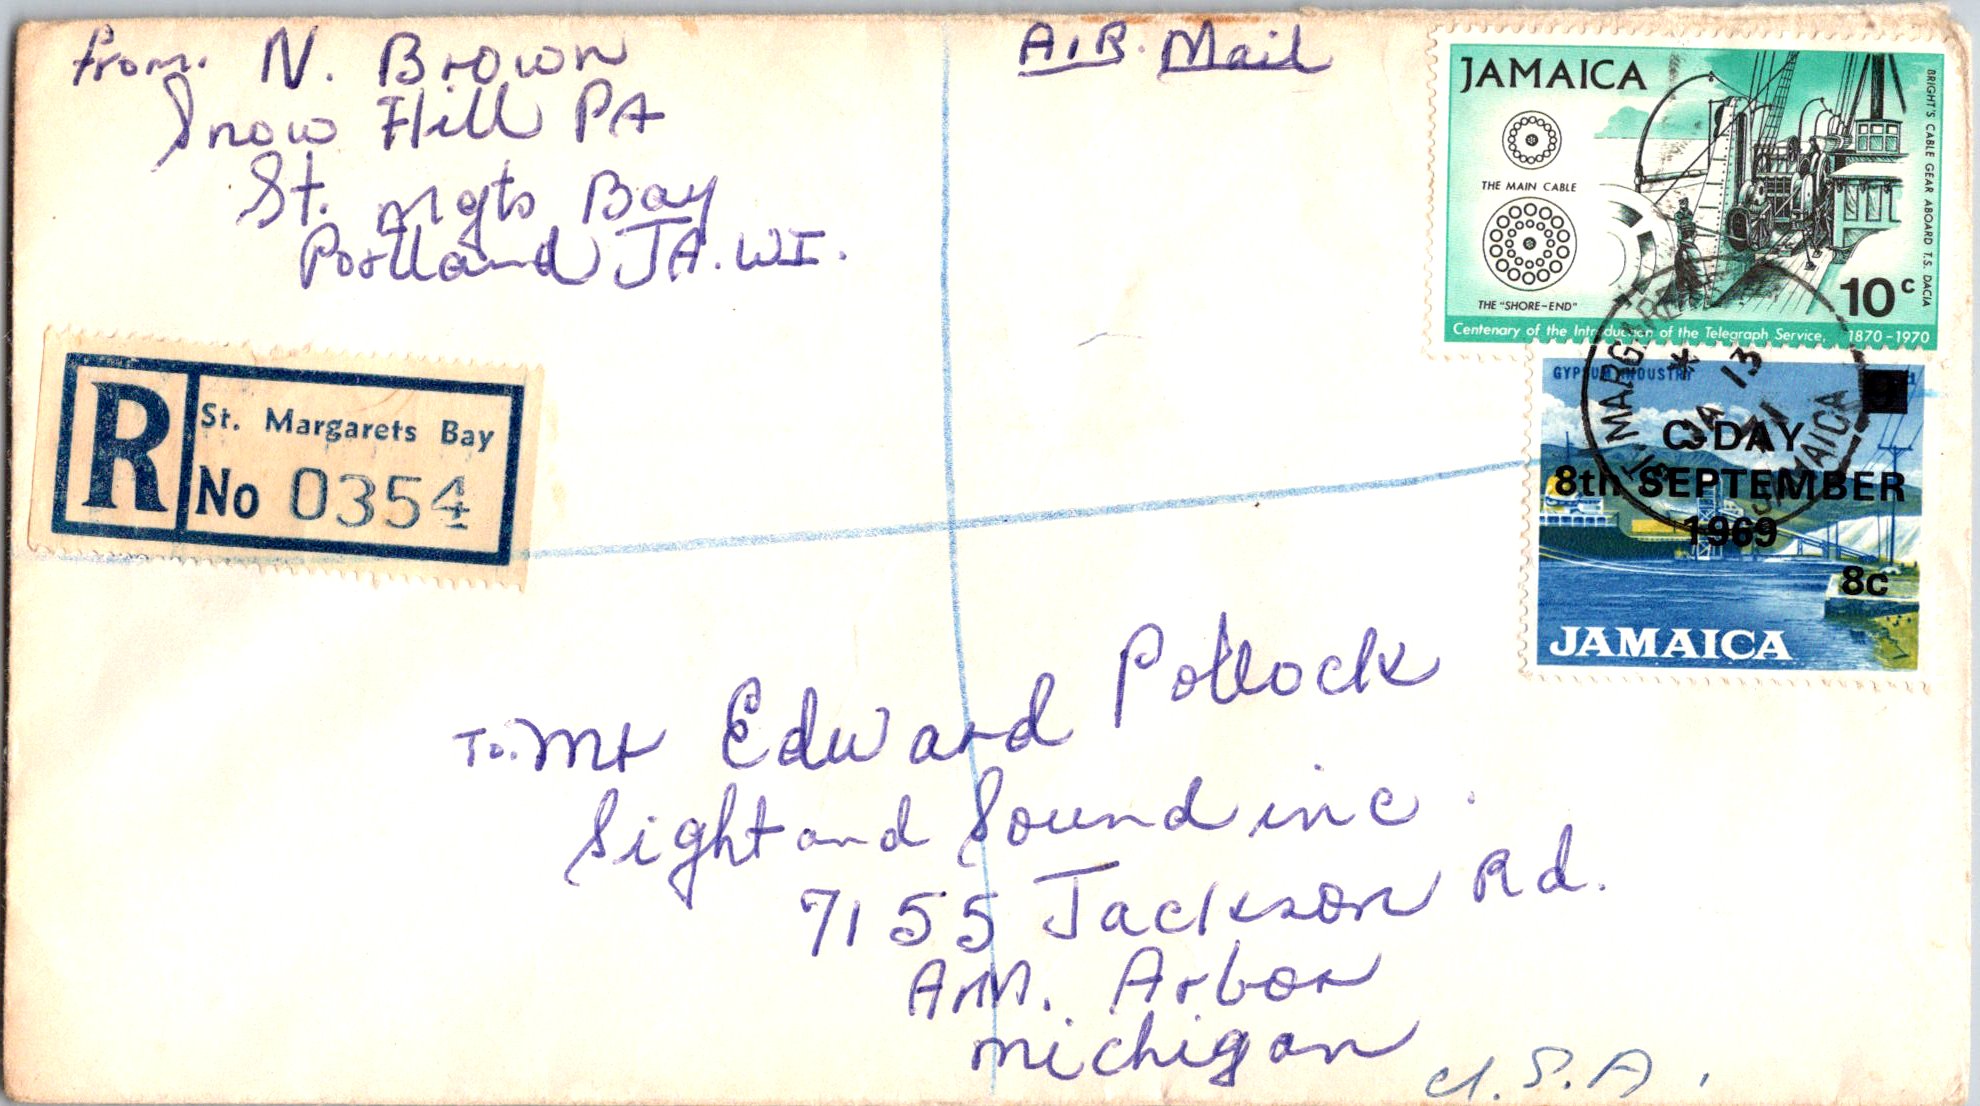 from. N. Brown
Snow Hill PA
St. Mgts Bay
Portland JA. W.I.
AIR. Mail
JAMAICA
THE MAIN CABLE
THE "SHORE-END"
BRIGHT'S CABLE GEAR ABOARD T.S. DACIA
10c
Centenary of the Introduction of the Telegraph Service, 1870-1970
GYPSUM INDUSTRY
C-DAY
8th SEPTEMBER
1969
8c
JAMAICA
ST. MARGARET
* 13
JA 71
JAMAICA
R
St. Margarets Bay
No 0354
To. Mr Edward Pollock
Sight and Sound inc.
7155 Jackson Rd.
Ann. Arbor
Michigan
U.S.A.